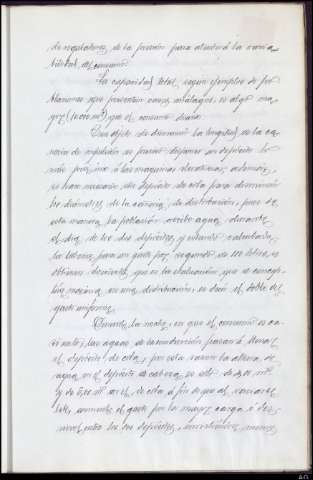 de reguladores de la presión para atender á la varia-
bilidad del consumo.
La capacidad total, según ejemplos de po-
blaciones que presentan casos análogos, es algo ma-
yor (10.000 m³) que el consumo diario.
Con objeto de disminuir la longitud de la ca-
ñería de impulsión es preciso disponer un depósito lo
más próximo á las máquinas elevatorias, además,
se hace necesario otro depósito de cola para disminuir
los diámetros de la cañería de distribución, pues de
esta manera la población recibe agua durante
el día de los dos depósitos, y estando calculada
la tubería para un gasto por segundo de 100 litros, se
obtienen doscientos, que es la elevación que se
máxima en una distribución, es decir el doble del
gasto uniforme.
Durante la noche, en que el consumo es ca-
si nulo, las aguas de la conducción pasan á llenar
el depósito de cola, por esta razón la altura de
agua en el depósito de cabeza es de
y de en el de cola, á fin de que al
aumente el gasto por la mayor carga ó des-
nivel entre los dos depósitos,